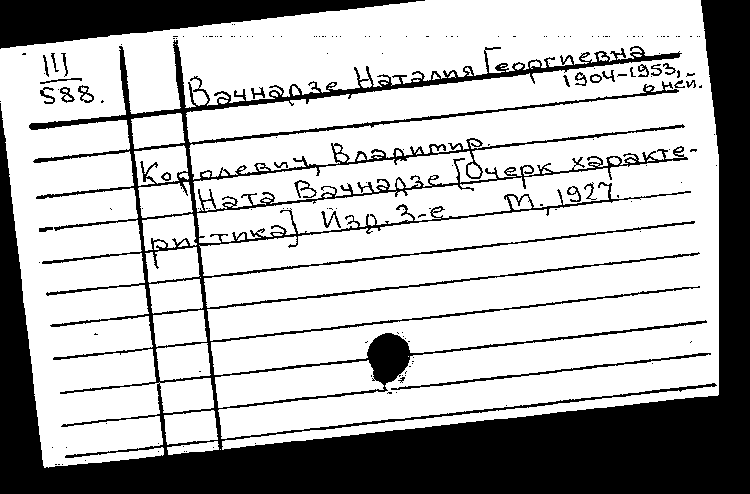 III
588.
Вачнадзе, Наталия Георгиевна
1904-1953,
о ней.
Королевич, Владимир.
Ната Вачнадзе [Очерк характе-
ристика]. Изд. 3-е. М., 1927.